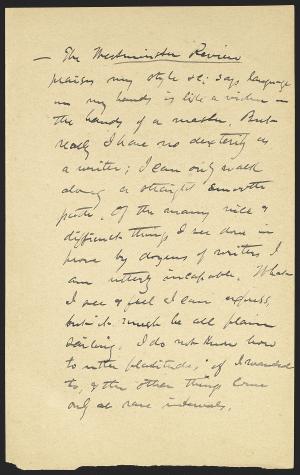 — The Westminster Review
praises my style &c; says language
in my hands is like a violin in
the hands of a master. But
really I have no dexterity as
a writer; I can only walk
along a straight smooth
path. Of the many nice &
difficult things I see done in
prose by dozens of writers I
am utterly incapable. What
I see & feel I can express,
but it must be all plain
sailing. I do not know how
to utter platitudes, if I wanted
to, & the other things come
only at rare intervals.